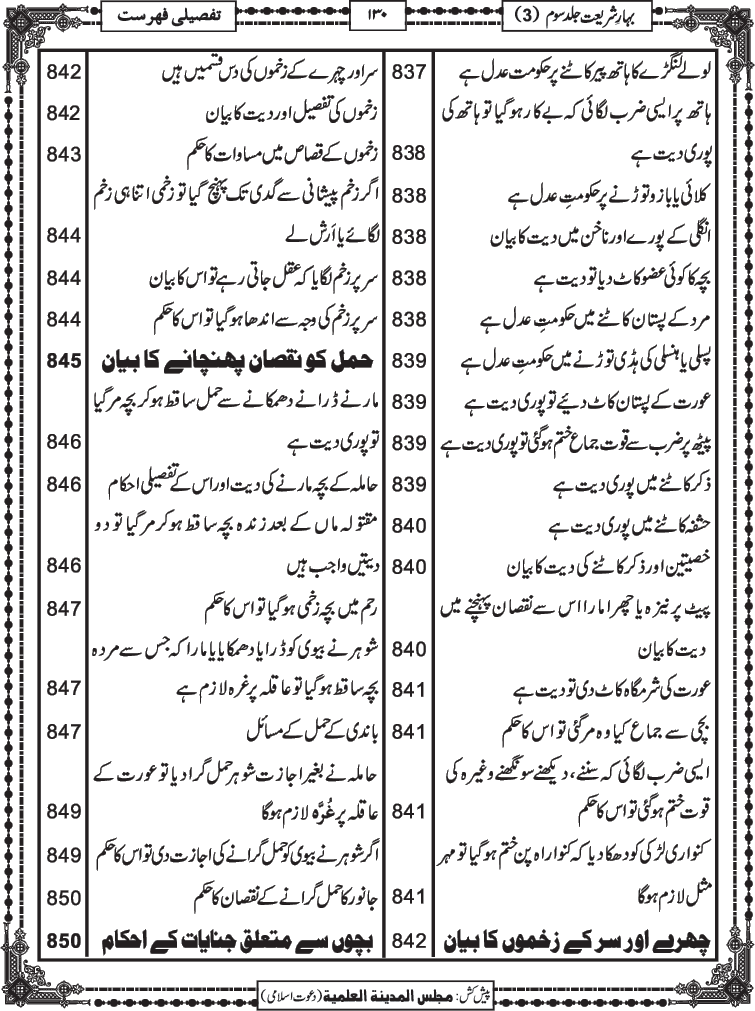 بہارِ شریعت جلد سوم (3)
۱۳۰
تفصیلی فہرست
لولے لنگڑے کا ہاتھ پیر کاٹنے پر حکومتِ عدل ہے 837
ہاتھ پر ایسی ضرب لگائی کہ بے کار ہو گیا تو ہاتھ کی
پوری دیت ہے 838
کلائی یا بازو توڑنے پر حکومتِ عدل ہے 838
انگلی کے پورے اور ناخن میں دیت کا بیان 838
بچہ کا کوئی عضو کاٹ دیا تو دیت ہے 838
مرد کے پستان کاٹنے میں حکومتِ عدل ہے 838
پسلی یا ہنسلی کی ہڈی توڑنے میں حکومتِ عدل ہے 839
عورت کے پستان کاٹ دئیے تو پوری دیت ہے 839
پیٹھ پر ضرب سے قوت جماع ختم ہو گئی تو پوری دیت ہے 839
ذکر کاٹنے میں پوری دیت ہے 839
حشفہ کاٹنے میں پوری دیت ہے 840
خصیتین اور ذکر کاٹنے کی دیت کا بیان 840
پیٹ پر نیزہ یا چھرا مارا اس سے نقصان پہنچنے میں
دیت کا بیان 840
عورت کی شرمگاہ کاٹ دی تو دیت ہے 841
بچی سے جماع کیا وہ مر گئی تو اس کا حکم 841
ایسی ضرب لگائی کہ سننے، دیکھنے سونگھنے وغیرہ کی
قوت ختم ہو گئی تو اس کا حکم 841
کنواری لڑکی کو دھکا دیا کہ کنوارہ پن ختم ہو گیا تو مہر
مثل لازم ہو گا 841
چھرے اور سر کے زخموں کا بیان 842
سر اور چہرے کے زخموں کی دس قسمیں ہیں 842
زخموں کی تفصیل اور دیت کا بیان 842
زخموں کے قصاص میں مساوات کا حکم 843
اگر زخم پیشانی سے گدی تک پہنچ گیا تو زخمی اتنا ہی زخم
لگائے یا اَرش لے 844
سر پر زخم لگایا کہ عقل جاتی رہے تو اس کا بیان 844
سر پر زخم کی وجہ سے اندھا ہو گیا تو اس کا حکم 844
حمل کو نقصان پھنچانے کا بیان 845
مارنے ڈرانے دھمکانے سے حمل ساقط ہو کر بچہ مر گیا
تو پوری دیت ہے 846
حاملہ کے بچہ مارنے کی دیت اور اس کے تفصیلی احکام 846
مقتولہ ماں کے بعد زندہ بچہ ساقط ہو کر مر گیا تو دو
دیتیں واجب ہیں 846
رحم میں بچہ زخمی ہو گیا تو اس کا حکم 847
شوہر نے بیوی کو ڈرایا دھمکایا یا مارا کہ جس سے مردہ
بچہ ساقط ہو گیا تو عاقلہ پر غرہ لازم ہے 847
باندی کے حمل کے مسائل 847
حاملہ نے بغیر اجازت شوہر حمل گرا دیا تو عورت کے
عاقلہ پر غُرَّہ لازم ہو گا 849
اگر شوہر نے بیوی کو حمل گرانے کی اجازت دی تو اس کا حکم 849
جانور کا حمل گرانے کے نقصان کا حکم 850
بچوں سے متعلق جنایات کے احکام 850
پیش کش: مجلس المدینة العلمیة (دعوتِ اسلامی)